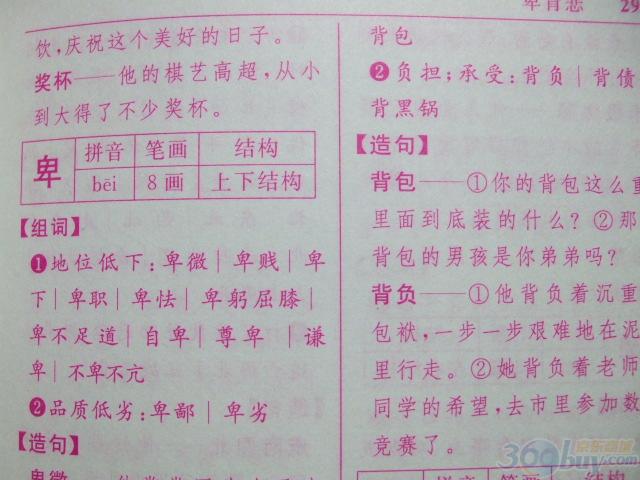 卑背悲 29
饮,庆祝这个美好的日子。
奖杯——他的棋艺高超,从小
到大得了不少奖杯。
卑 拼音 笔画 结构
bēi 8画 上下结构
【组词】
❶地位低下:卑微|卑贱|卑
下|卑职|卑怯|卑躬屈膝|
卑不足道|自卑|尊卑|谦
卑|不卑不亢
❷品质低劣:卑鄙|卑劣
【造句】
卑微
背包
❷负担;承受:背负|背债
背黑锅
【造句】
背包——①你的背包这么重
里面到底装的什么?②那
背包的男孩是你弟弟吗?
背负——①他背负着沉重
包袱,一步一步艰难地在泥
里行走。②她背负着老师
同学的希望,去市里参加数
竞赛了。
拼音 笔画 结构
360buy.com 京东商城